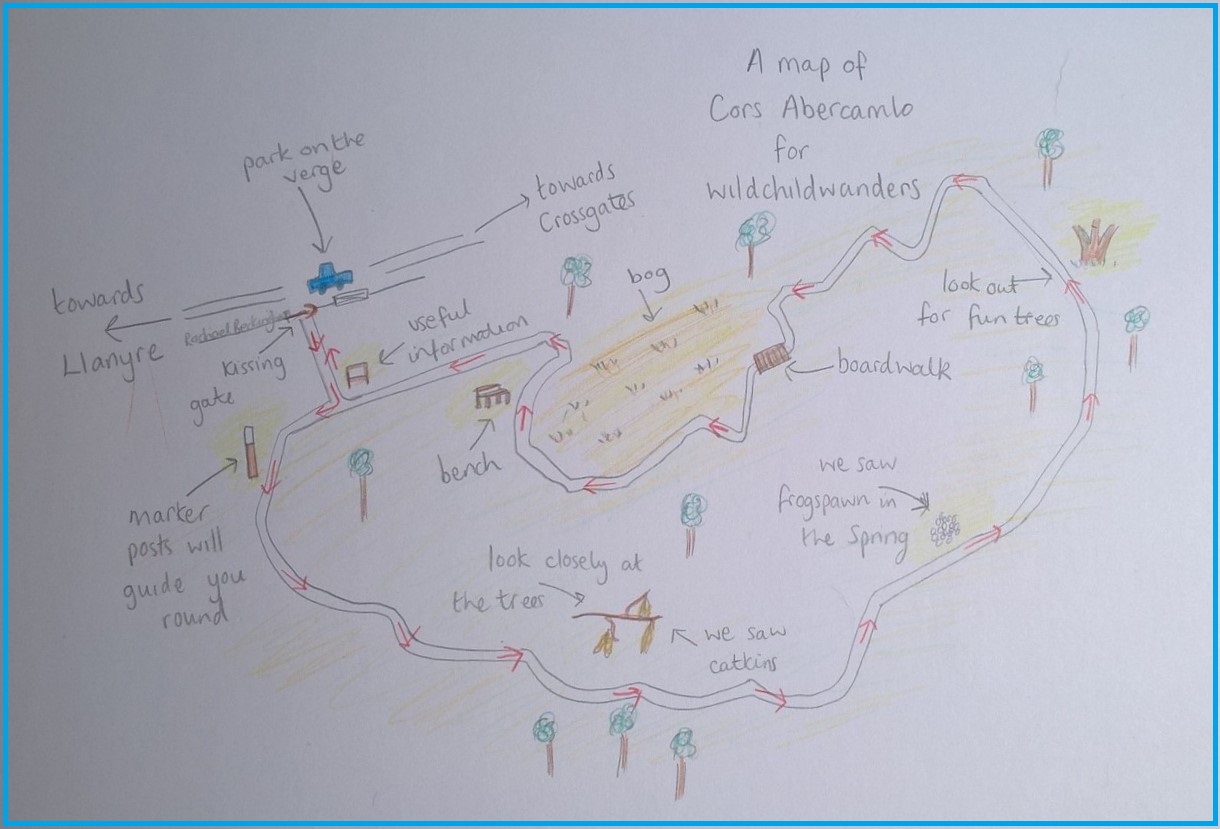 A map of
Cors Abercamlo
for
wildchildwanders
park on the
verge
towards
Crossgates
towards
Llanyre
Rachael Beckingham
kissing
gate
useful
information
bog
look out
for fun trees
boardwalk
bench
marker
posts will
guide you
round
we saw
frogspawn in
the Spring
look closely at
the trees
we saw
catkins